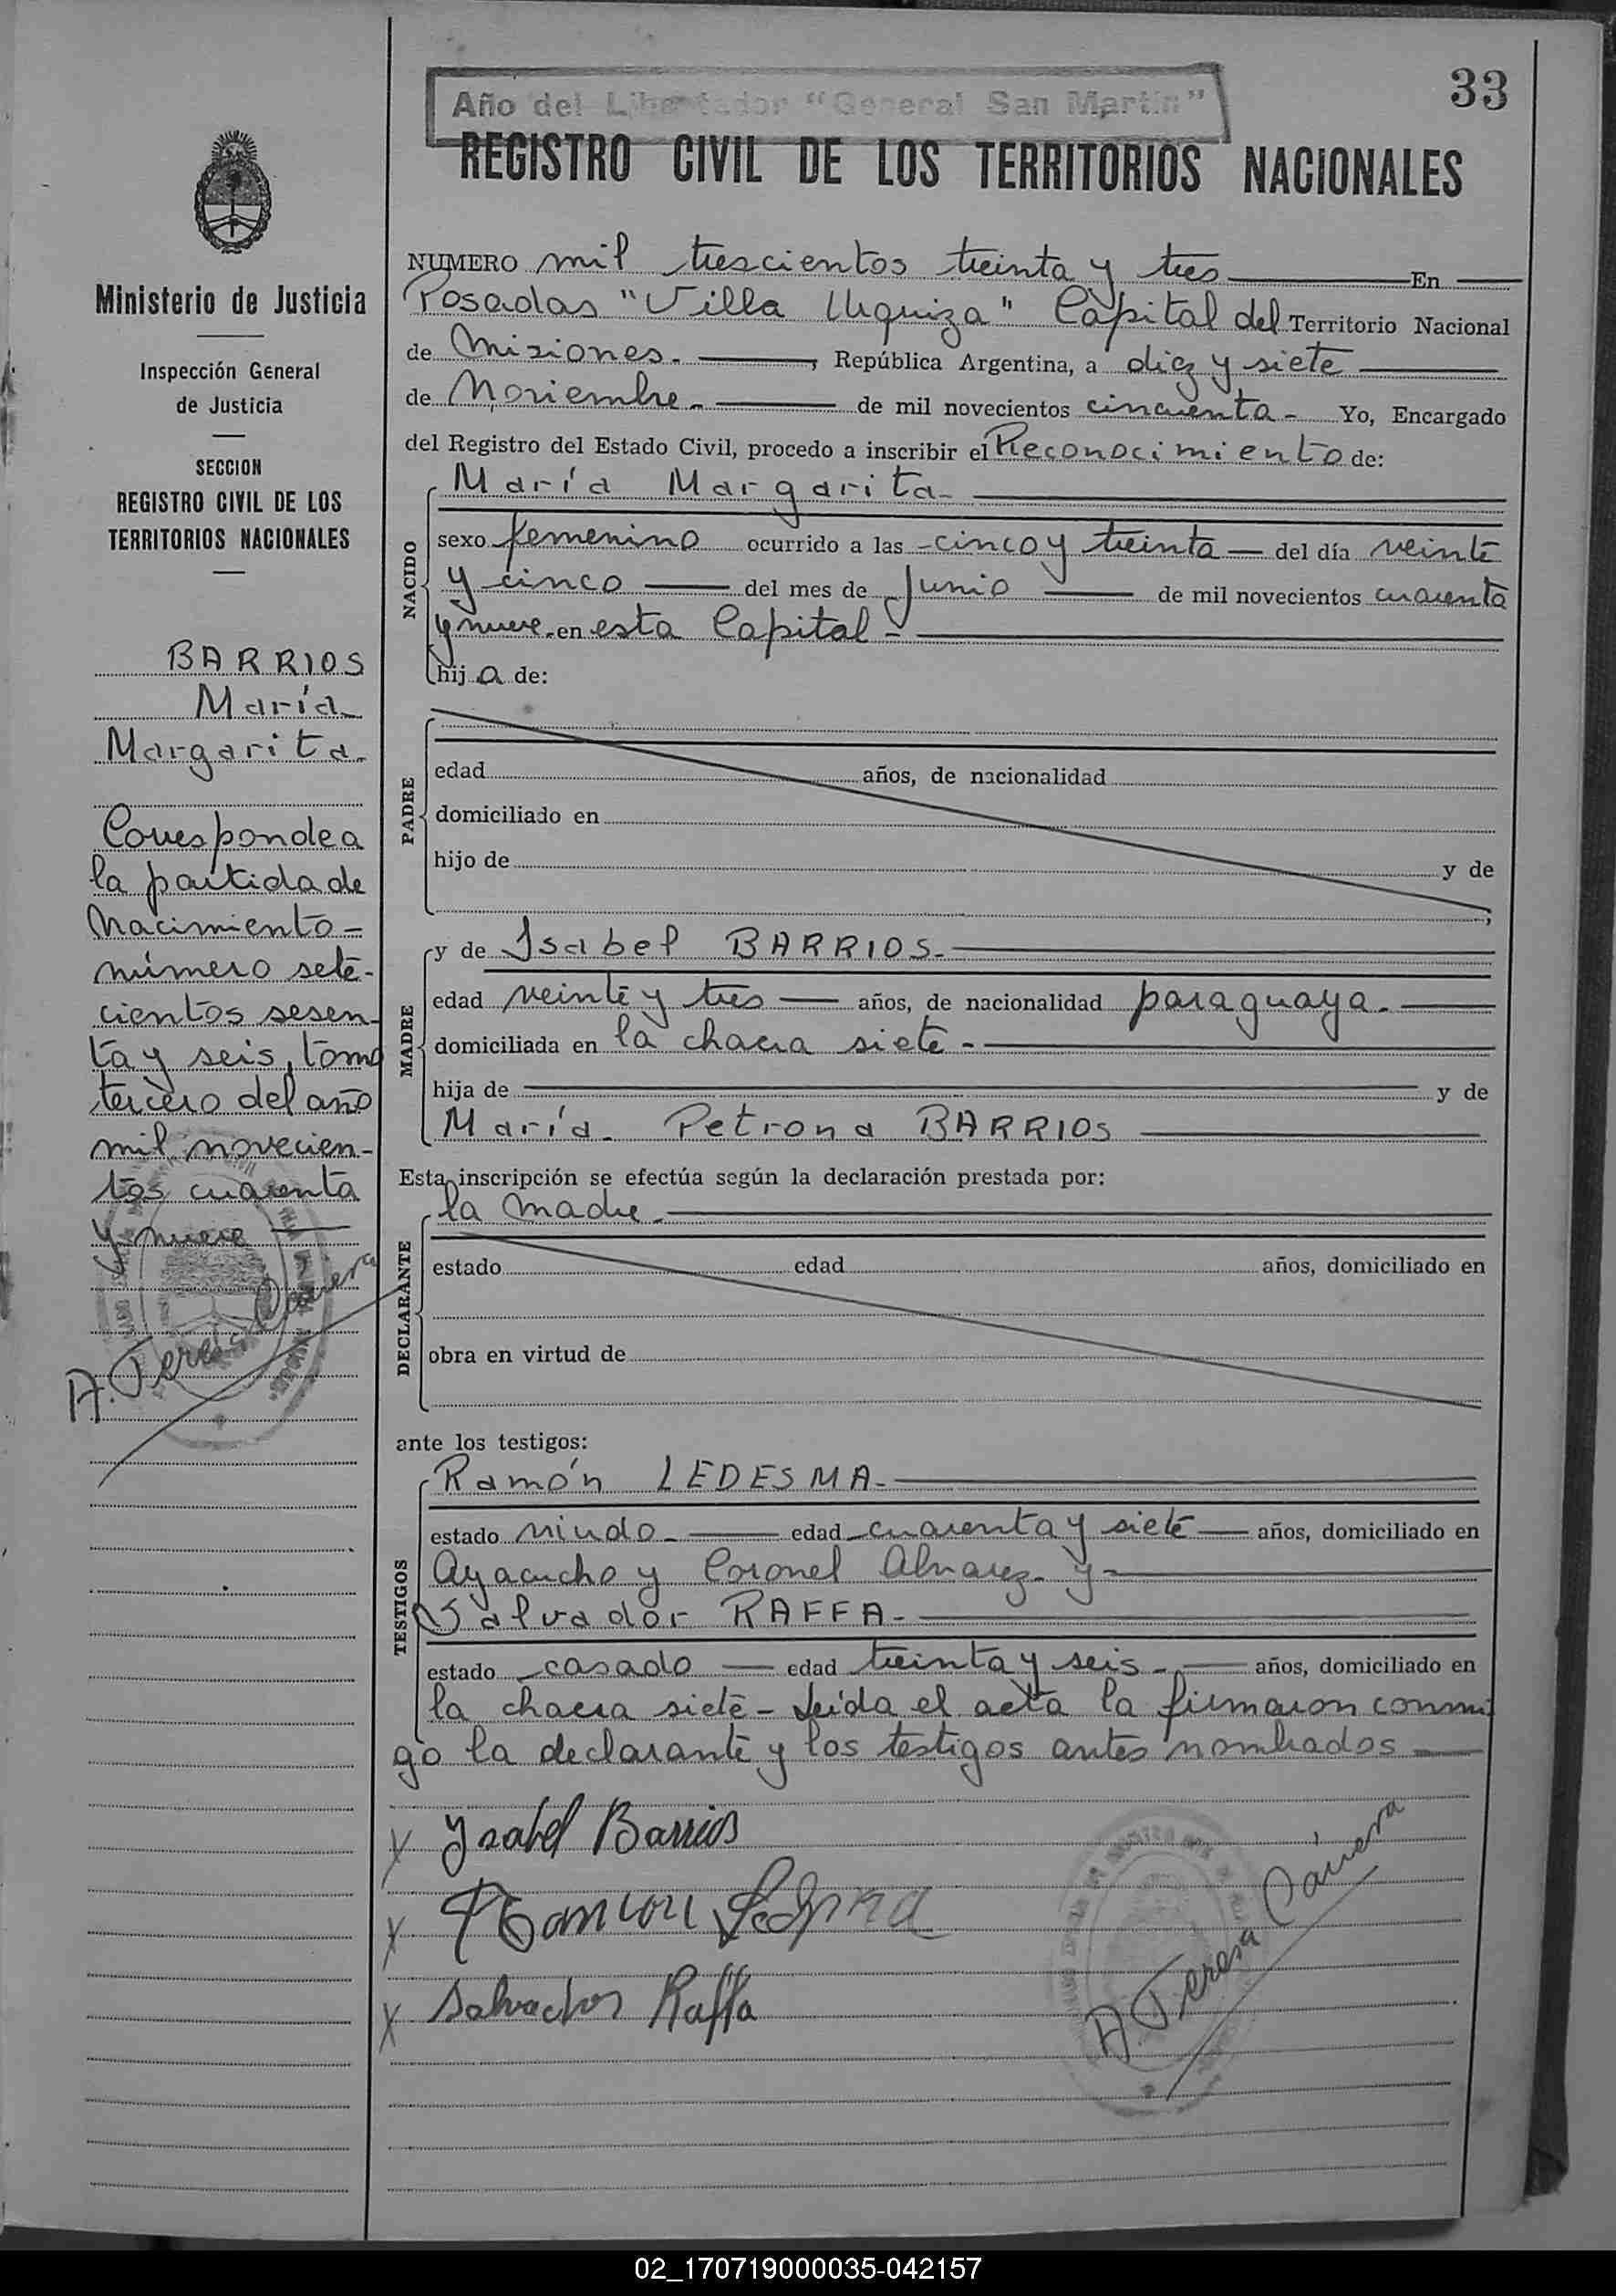 33
Año del Libertador "General San Martín"
REGISTRO CIVIL DE LOS TERRITORIOS NACIONALES
Ministerio de Justicia
Inspección General
de Justicia
SECCION
REGISTRO CIVIL DE LOS
TERRITORIOS NACIONALES
BARRIOS
María
Margarita.
Corresponde a
la partida de
Nacimiento -
número sete-
cientos sesen-
ta y seis, tomo
tercero del año
mil novecien-
tos cuarenta
y nueve
A. Teresa Carrera
NUMERO mil trescientos treinta y tres En
Posadas "Villa Urquiza" Capital del Territorio Nacional
de Misiones. , República Argentina, a diez y siete
de Noviembre. de mil novecientos cincuenta - Yo, Encargado
del Registro del Estado Civil, procedo a inscribir el Reconocimiento de:
María Margarita-
NACIDO
sexo femenino ocurrido a las -cinco y treinta del día veinte
y cinco del mes de Junio de mil novecientos cuarenta
y nueve. en esta Capital -
hij a de:
PADRE
edad años, de nacionalidad
domiciliado en
hijo de y de
;
MADRE
y de Isabel BARRIOS.
edad veinte y tres años, de nacionalidad paraguaya.
domiciliada en la chacra siete -
hija de y de
María Petrona BARRIOS
Esta inscripción se efectúa según la declaración prestada por:
la madre.
DECLARANTE
estado edad años, domiciliado en
obra en virtud de
ante los testigos:
TESTIGOS
Ramón LEDESMA.
estado viudo. edad cuarenta y siete años, domiciliado en
Ayacucho y Coronel Alvarez. y
Salvador RAFFA.
estado casado edad treinta y seis. años, domiciliado en
la chacra siete - Leída el acta la firmaron conmi
go la declarante y los testigos antes nombrados
X Ysabel Barrios
X Ramon Ledesma
X Salvador Raffa
A. Teresa Carrera
02_170719000035-042157